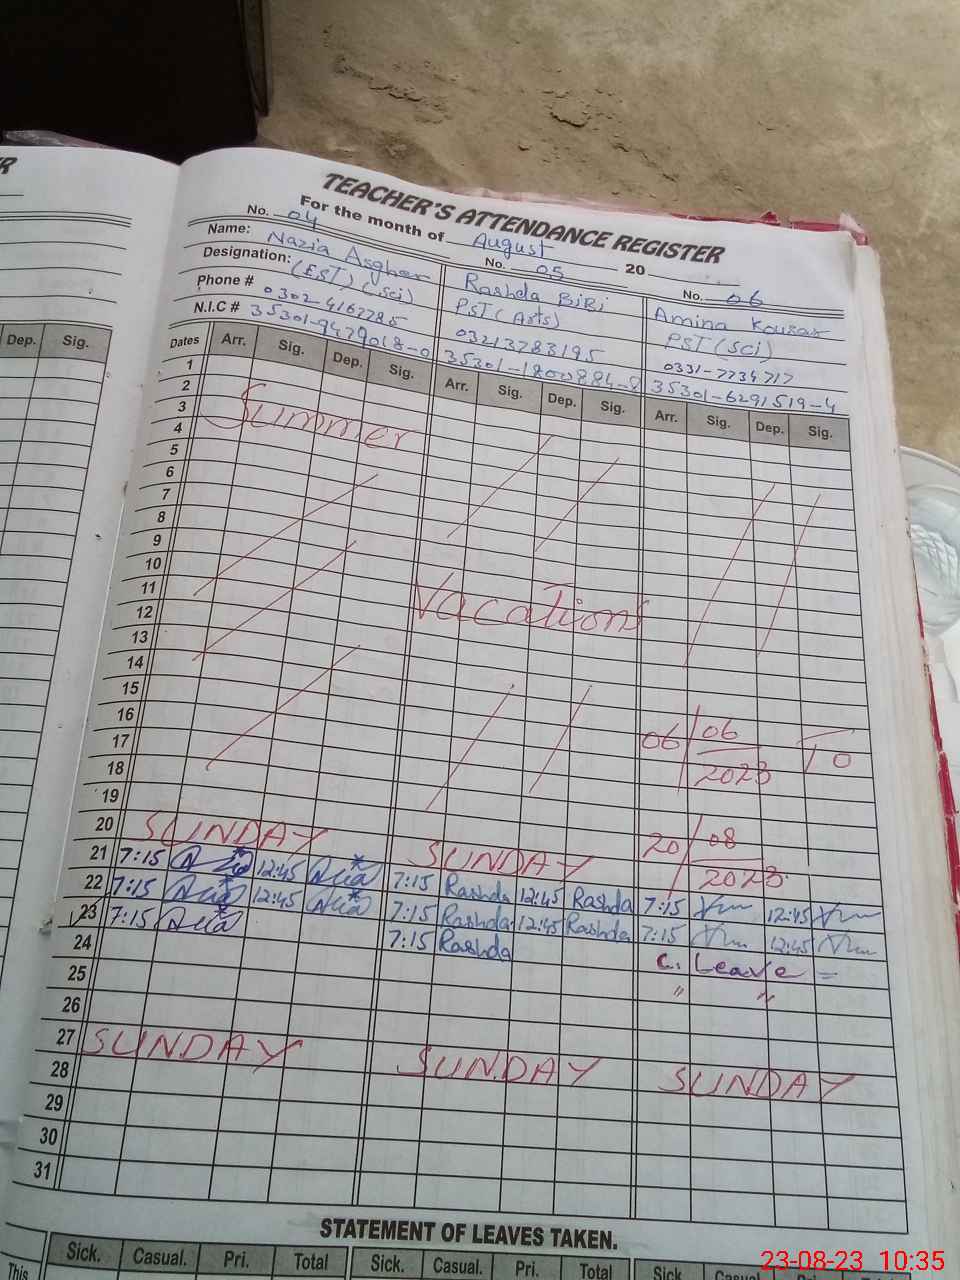 R
TEACHER'S ATTENDANCE REGISTER
For the month of August 20
No. 04 No. 05 No. 06
Name: Nazia Asghar Rashda BiBi Amina Kousar
Designation: (EST) (Sci) PST (Arts) PST (Sci)
Phone # 0302-4167785 03213783195 0331-7734717
N.I.C # 35301-9479018-0 35301-1800884-8 35301-6291519-4
Dates Arr. Sig. Dep. Sig. Arr. Sig. Dep. Sig. Arr. Sig. Dep. Sig.
Dep. Sig.
1
2
3 Summer
4
5
6
7
8
9
10
11 Vacations
12
13
14
15
16
17 06/06/2023 To
18
19
20 SUNDAY SUNDAY 20/08/2023
21 7:15 12:45 7:15 Rashda 12:45 Rashda 7:15 12:45
22 7:15 12:45 7:15 Rashda 12:45 Rashda 7:15 12:45
23 7:15 7:15 Rashda C. Leave =
24 " "
25
26
27 SUNDAY SUNDAY SUNDAY
28
29
30
31
STATEMENT OF LEAVES TAKEN.
Sick. Casual. Pri. Total Sick. Casual. Pri. Total Sick Casual
This
23-08-23 10:35